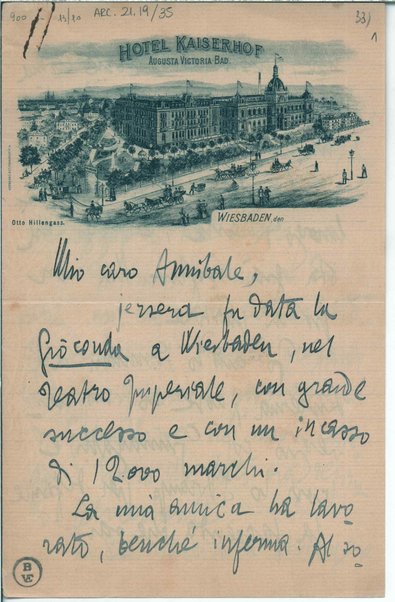 900 13/20 ARC. 21.19/35 33)
1
HOTEL KAISERHOF
AUGUSTA VICTORIA-BAD.
Otto Hillengass.
WIESBADEN, den
Mio caro Annibale,
jersera fu data la
Gioconda a Wiesbaden, nel
Teatro Imperiale, con grande
successo e con un incasso
di 12000 marchi.
La mia amica ha lavo
rato, benché inferma. Al so
B
VE